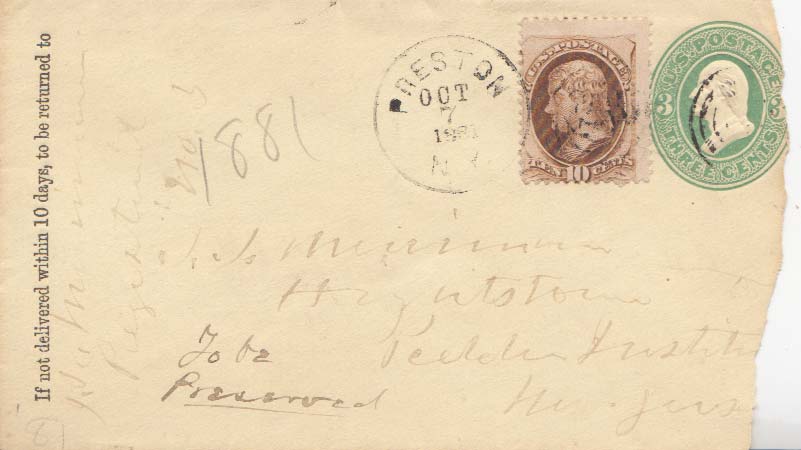 If not delivered within 10 days, to be returned to
Registered
No
1881
PRESTON
OCT
7
N.Y.
U.S. POSTAGE
TEN 10 CENTS
U.S. POSTAGE
3 3
THREE CENTS
Merriman
Hightstown
Peddie Institu
New Jers
To be
Preserved